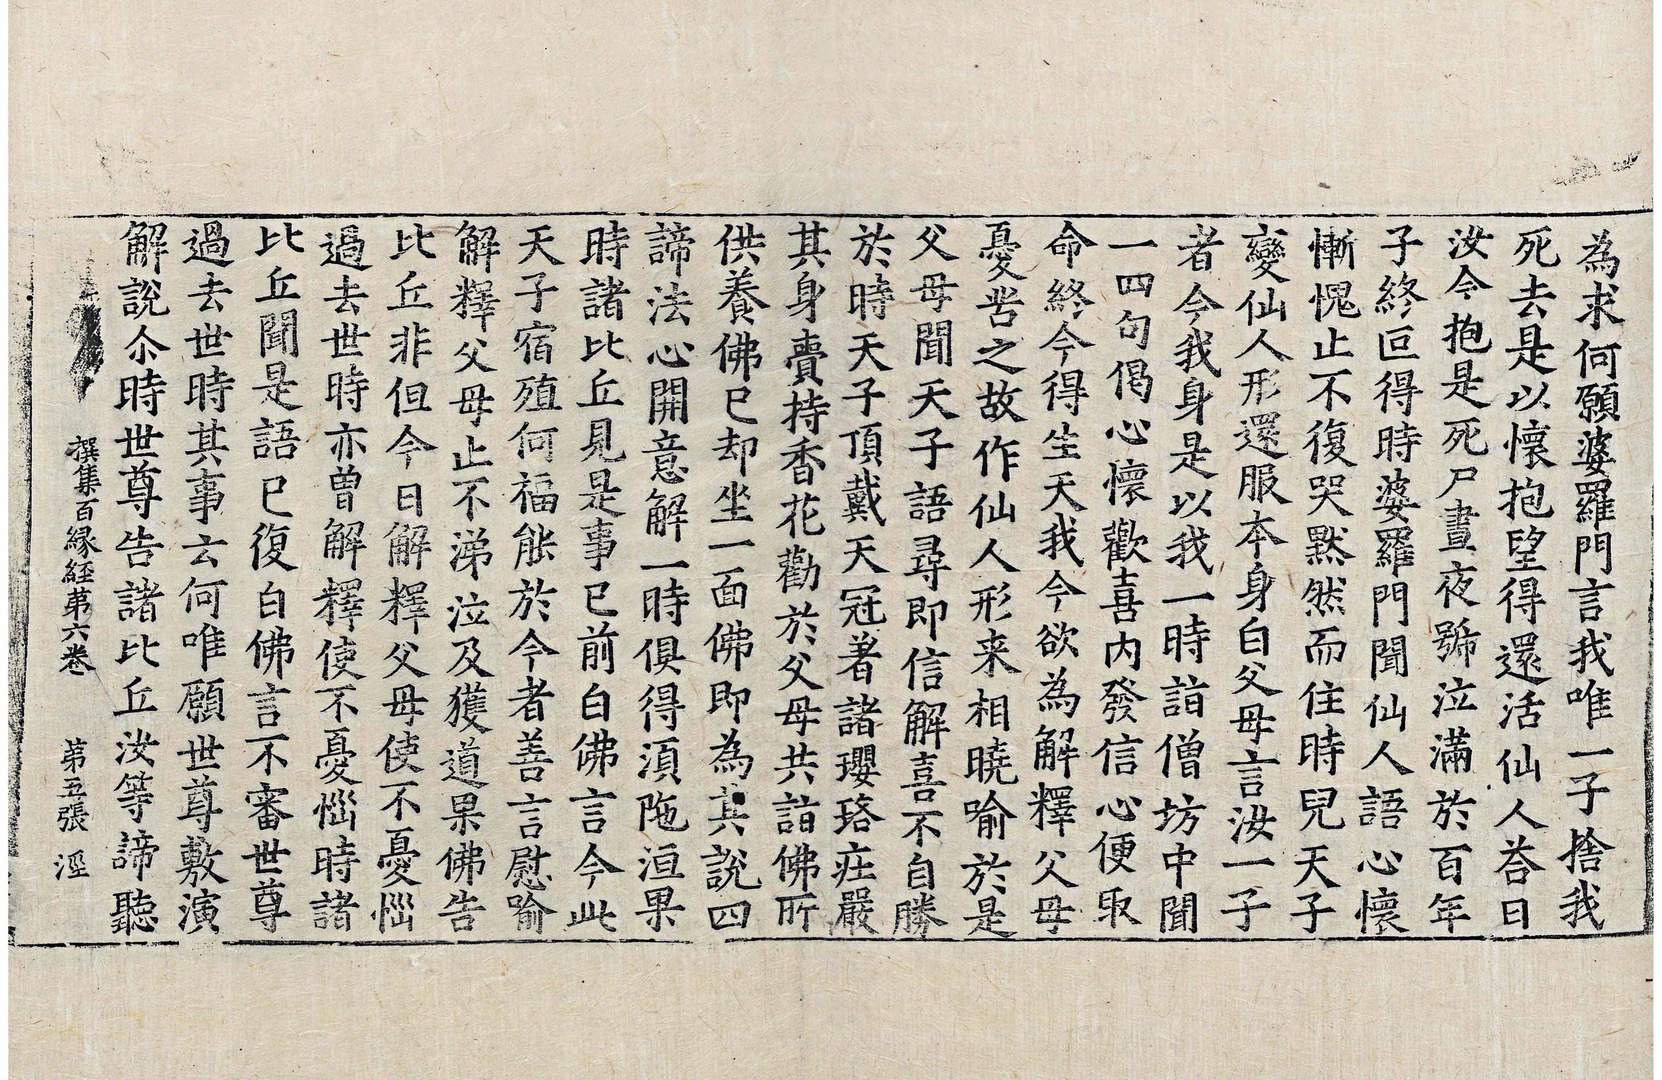 為求何願婆羅門言我唯一子捨我
死去是以懷抱望得還活仙人荅曰
汝今抱是死尸晝夜號泣滿於百年
子終叵得時婆羅門聞仙人語心懷
慚愧止不復哭黙然而住時兒天子
變仙人形還服本身白父母言汝一子
者今我身是以我一時詣僧坊中聞
一四句偈心懷歡喜内發信心便取
命終今得生天我今欲為解釋父母
憂苦之故作仙人形来相曉喻於是
父母聞天子語尋即信解喜不自勝
於時天子頂戴天冠著諸瓔珞庄嚴
其身賷持香花勸於父母共詣佛所
供養佛已却坐一面佛即為其說四
諦法心開意解一時俱得湏陁洹果
時諸比丘見是事已前白佛言今此
天子宿殖何福能於今者善言慰喻
解釋父母止不涕泣及獲道果佛告
比丘非但今日解釋父母使不憂惱
過去世時亦曾解釋使不憂惱時諸
比丘聞是語已復白佛言不審世尊
過去世時其事云何唯願世尊敷演
解說尒時世尊告諸比丘汝等諦聽
撰集百縁経苐六巻 苐五張 涇